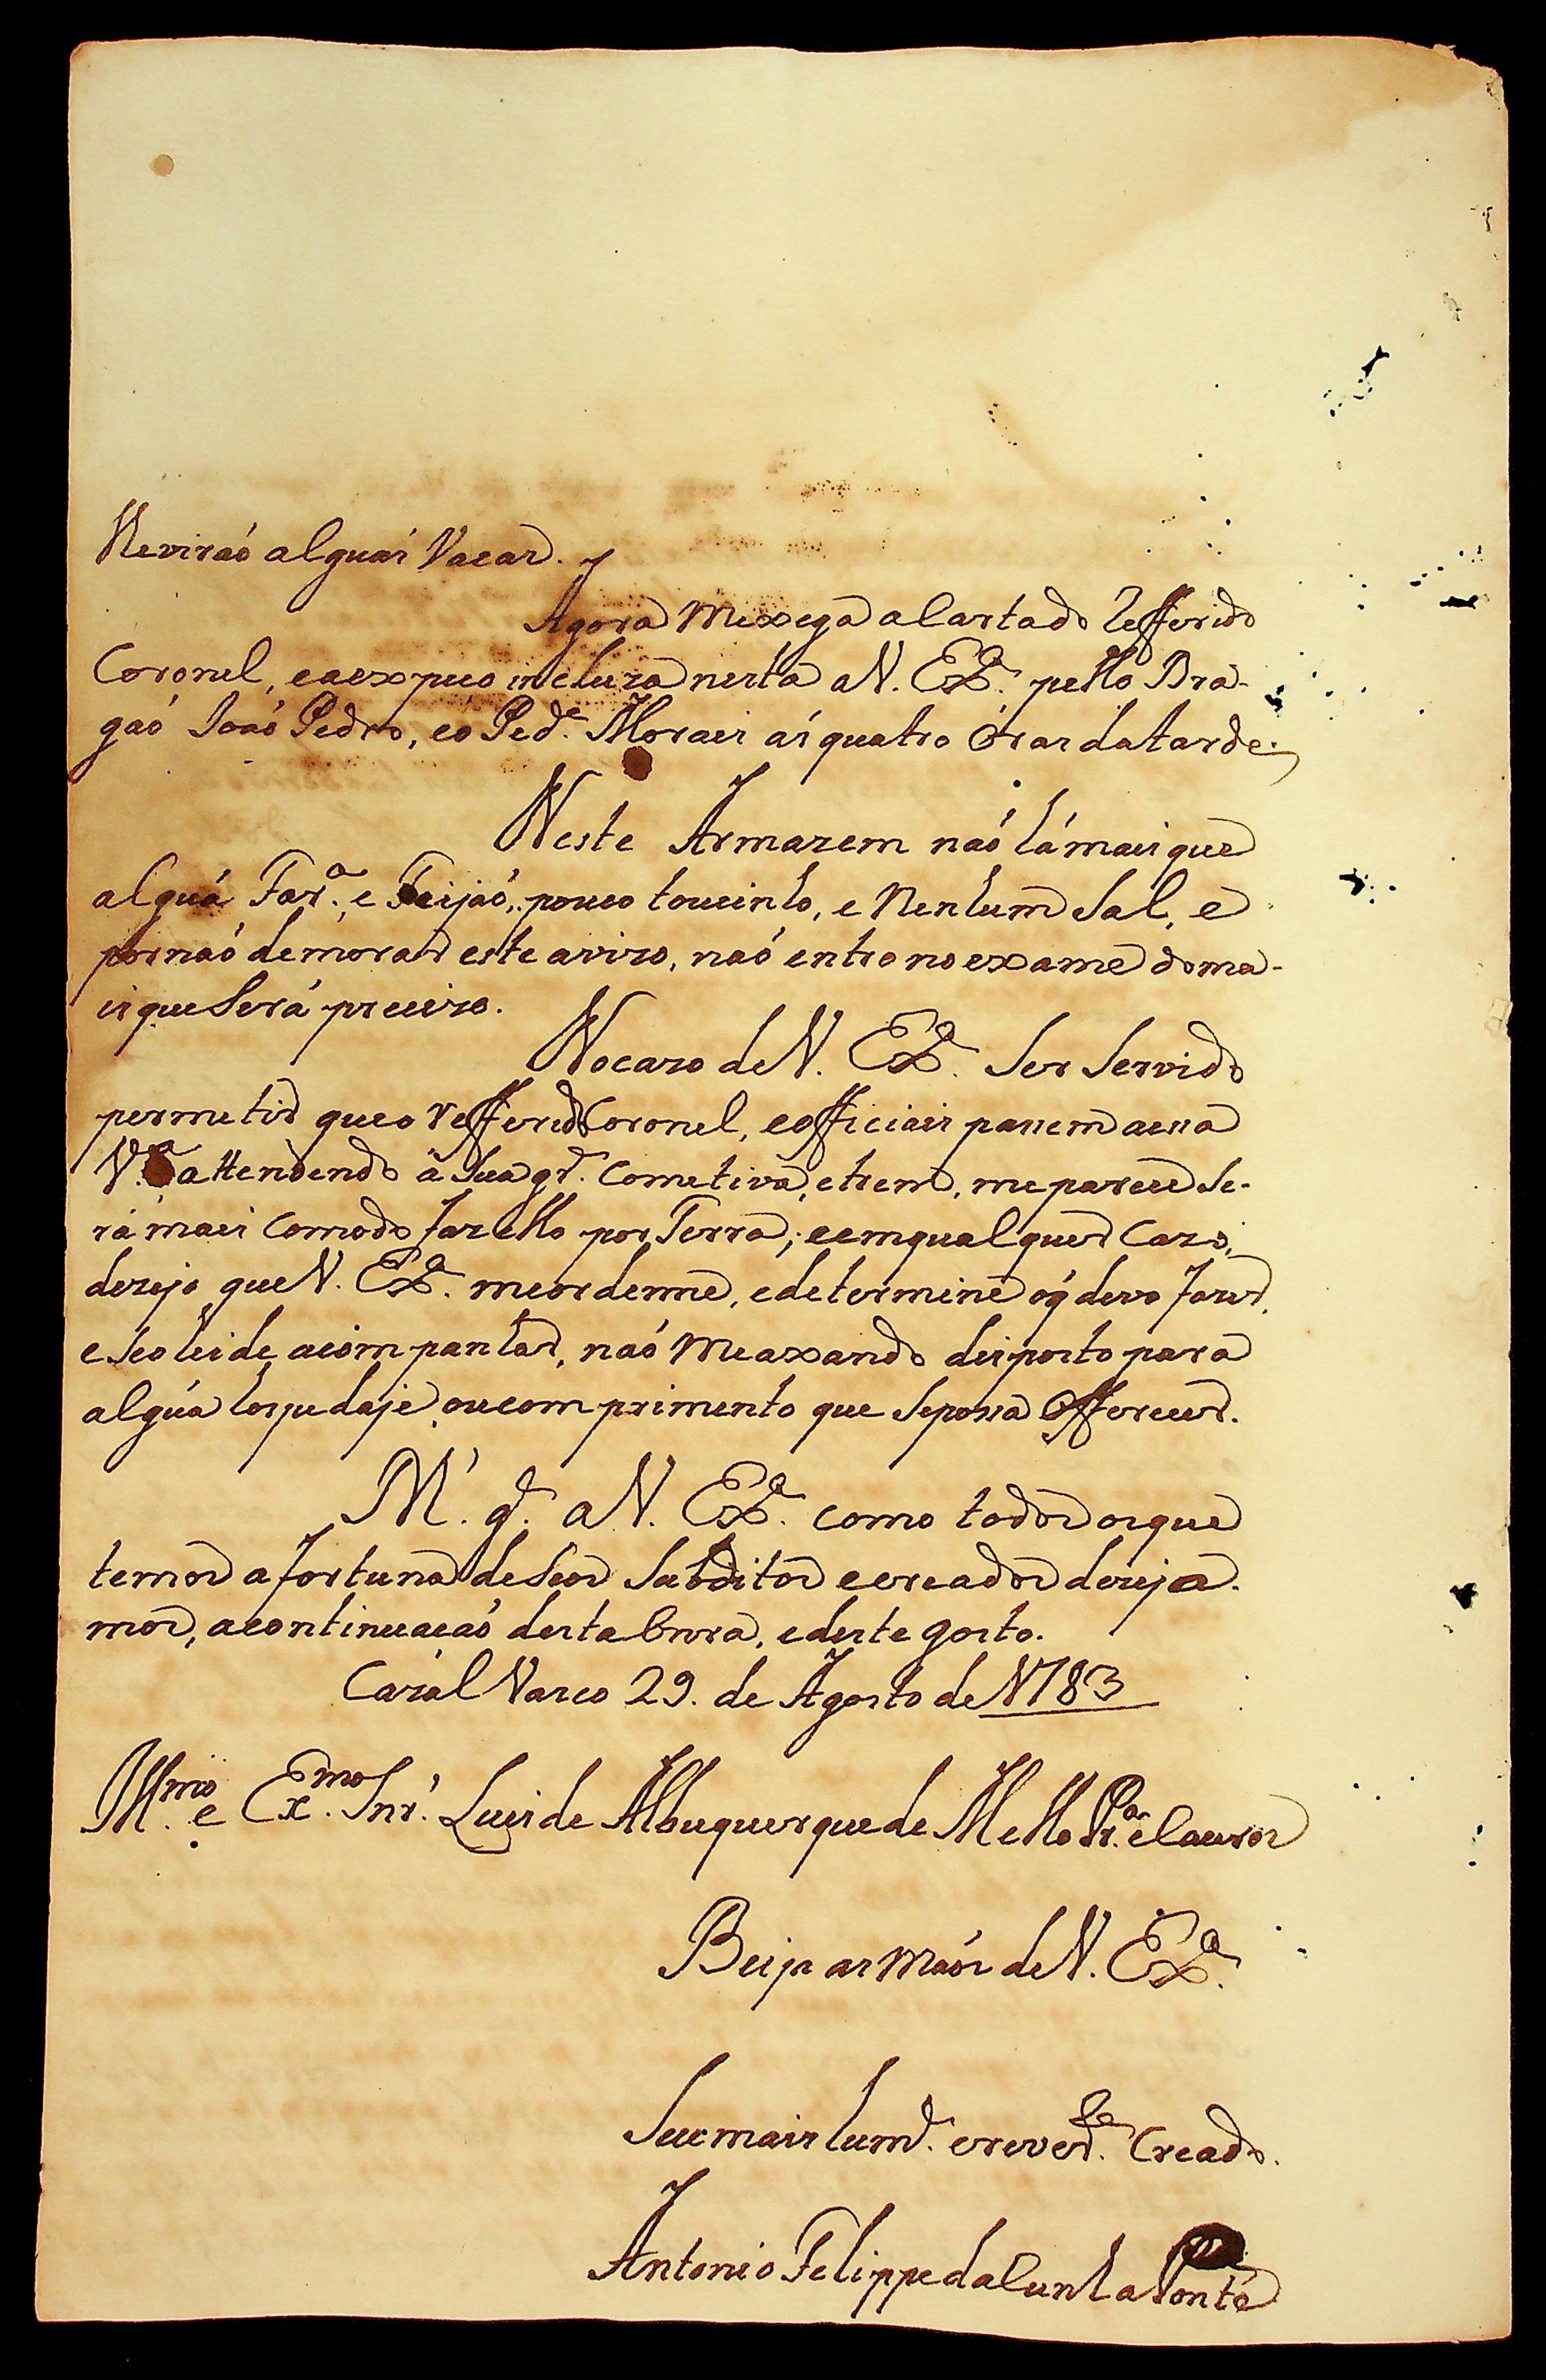 Reviraó alguás Vacas.
Agora me xega a Carta do Refferido
Coronel, e a expeço incluza nesta a V. Ex.ª pello Dra-
gaó Joaó Pedro, e o Ped.e Moraes ás quatro Oras da tarde.
Neste Armazem naó há mais que
alguá Far.ª e Feijaó, pouco toucinho, e Nenhum Sal, e
por naó demorar este avizo, naó entro no exame do ma-
is que Será precizo.
No cazo de V. Ex.ª Ser Servido
permetir que o refferido Coronel, e officiais passem a essa
V.ª attendendo á Sua gr. Cometiva, e trem, me parece Se-
rá mais Comodo fazello por Terra; e em qualquer Cazo,
dezejo que V. Ex.ª me ordenne, e determine o q̃ devo fazer,
e Se o hei de acompanhar, naó me axando disposto para
algúa hospedaje ou comprimento que Se possa Offerecer.
N. g.e a V. Ex.ª como todos os que
temos a fortuna de Seos Subditos e creados deseja-
mos, a continuacaó desta honra, e deste gosto.
Cazal Vasco 29. de Agosto de 1783
Ill.mo e Ex.mo Snr. Luis de Albuquerque de Mello Pr.ª e Caceres
Beija as Maós de V. Ex.ª
Seu mais humd.e e reverd.e Creado.
Antonio Felippe da Cunha Ponte